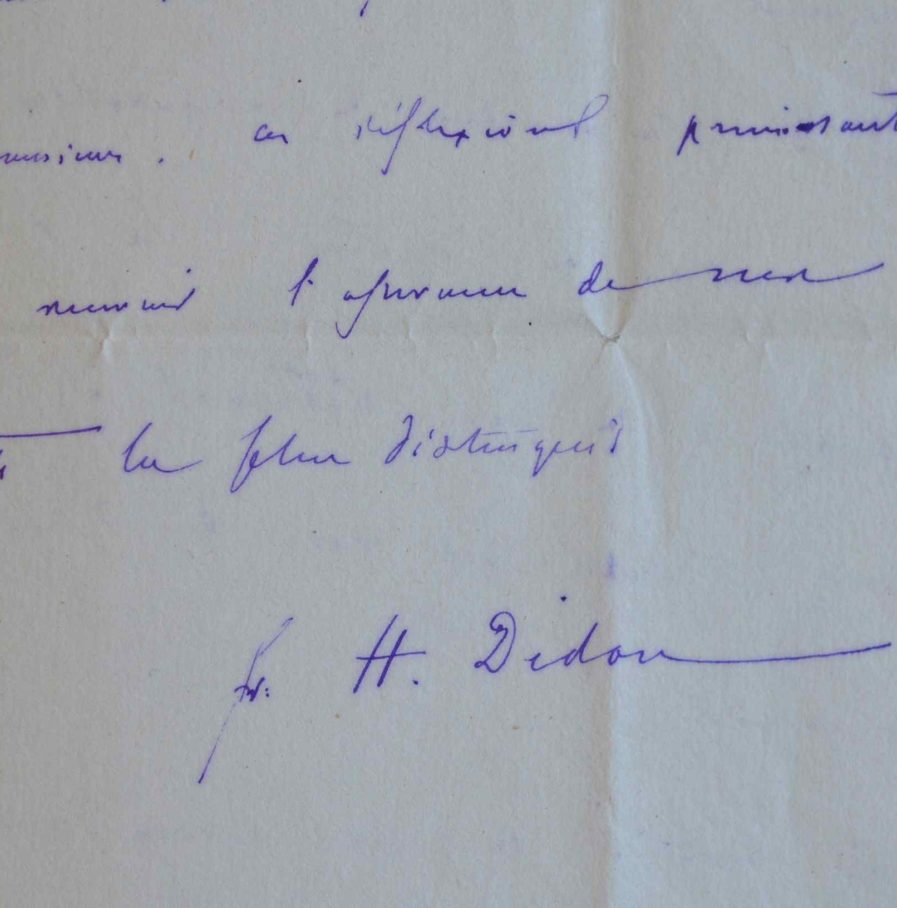 monsieur. ces réflexions puissant
recevoir l'assurance de mes
les plus distingués
fr. H. Didon